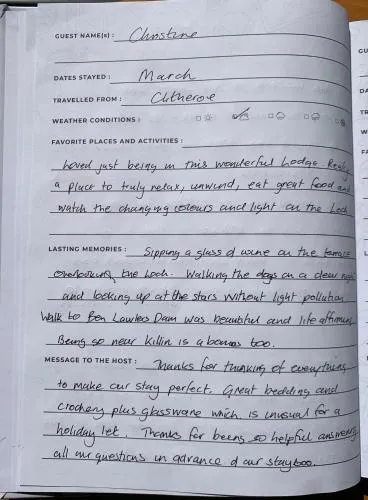 GUEST NAME(s) : Christine
DATES STAYED : March
TRAVELLED FROM : Clitheroe
WEATHER CONDITIONS :
FAVORITE PLACES AND ACTIVITIES :
Loved just being in this wonderful Lodge. Really
a place to truly relax, unwind, eat great food and
watch the changing colours and light on the Loch
LASTING MEMORIES : Sipping a glass of wine on the terrace
overlooking the Loch. Walking the dogs on a clear night
and looking up at the stars without light pollution.
Walk to Ben Lawers Dam was beautiful and life affirming
Being so near Killin is a bonus too.
MESSAGE TO THE HOST : Thanks for thinking of everything
to make our stay perfect. Great bedding and
crockery plus glassware which is unusual for a
holiday let. Thanks for being so helpful answering
all our questions in advance of our stay too.
GU
DA
TR
WE
FA
LA
ME